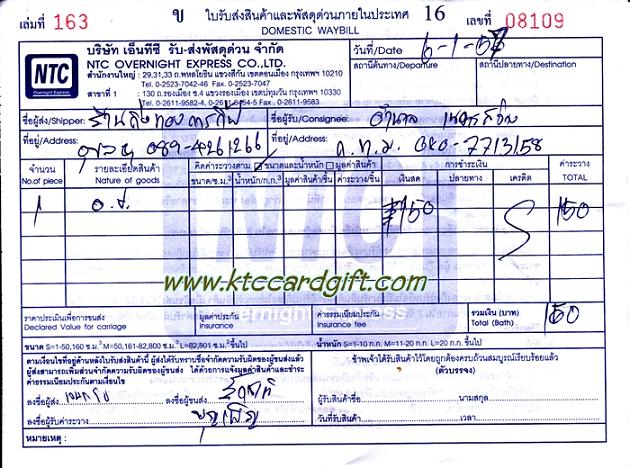 เล่มที่ 163 ข ใบรับส่งสินค้าและพัสดุด่วนภายในประเทศ 16 เลขที่ 08109
DOMESTIC WAYBILL
NTC
Overnight Express
บริษัท เอ็นทีซี รับ-ส่งพัสดุด่วน จำกัด
NTC OVERNIGHT EXPRESS CO.,LTD.
สำนักงานใหญ่ : 29,31,33 ถ.พหลโยธิน แขวงสีกัน เขตดอนเมือง กรุงเทพฯ 10210
Tel. 0-2523-7042-46 Fax. 0-2523-7047
สาขาที่ 1 : 130 ถ.รองเมือง ซ.4 แขวงรองเมือง เขตปทุมวัน กรุงเทพฯ 10330
Tel. 0-2611-9582-4, 0-2611-6454-5 Fax. 0-2611-9583
วันที่/Date 6-1-57
สถานีต้นทาง/Departure สถานีปลายทาง/Destination
ชื่อผู้ส่ง/Shipper: ชื่อผู้รับ/Consignee:
ที่อยู่/Address: 089-4261266 ที่อยู่/Address: ก.ท.ม. 080-7713158
จำนวน
No.of piece
รายละเอียดสินค้า
Nature of goods
คิดค่าระวางตาม ขนาดและน้ำหนัก มูลค่าสินค้า
ขนาด/ซ.ม.³ น้ำหนัก/ก.ก.³ มูลค่าสินค้า/ชิ้น ค่าระวาง/ชิ้น
การชำระเงิน
เงินสด ปลายทาง เครดิต
ค่าระวาง
TOTAL
1 150 150
NTC
www.ktccardgift.com
Overnight Express
ราคาประเมินเพื่อการขนส่ง
Declared Value for carriage
มูลค่าประกัน
Insurance
ค่าธรรมเนียมประกัน
Insurance fee
รวมเงิน (บาท)
Total (Bath)
150
ขนาด S=1-50,160 ซ.ม³ M=50,161-82,800 ซ.ม³ L=82,801 ซ.ม³ ขึ้นไป น้ำหนัก S=1-10 ก.ก. M=11-20 ก.ก. L=20 ก.ก. ขึ้นไป
ตามเงื่อนไขที่อยู่ด้านหลังใบรับส่งสินค้านี้ ผู้ส่งได้รับทราบข้อจำกัดความรับผิดของผู้ขนส่งแล้ว
ผู้ส่งสามารถเพิ่มส่วนจำกัดความรับผิดของผู้ขนส่ง ได้ด้วยการแจ้งมูลค่าสินค้าและชำระ
ค่าธรรมเนียมประกันตามเงื่อนไข
ข้าพเจ้าได้รับสินค้าไว้โดยถูกต้องครบถ้วนสมบูรณ์เรียบร้อยแล้ว
(ตัวบรรจง)
ลงชื่อผู้ส่ง ลงชื่อผู้ขนส่ง
ผู้รับสินค้าชื่อ นามสกุล
ลงชื่อผู้รับค่าระวาง
วันที่รับสินค้า เวลา
หมายเหตุ :